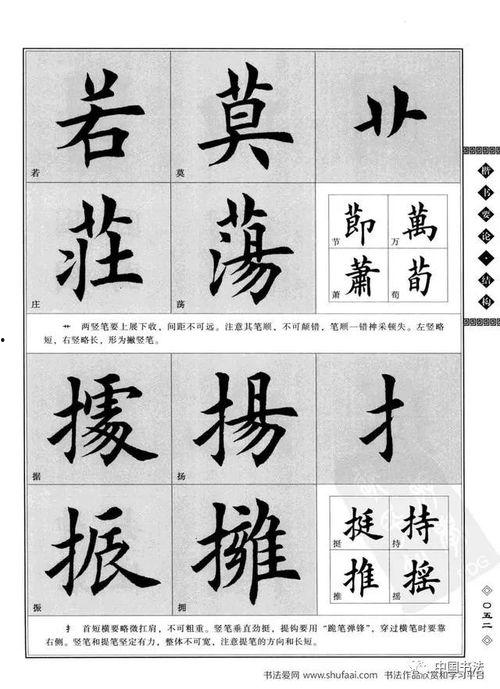 若 莫 艹
若 莫
莊 蕩 節 萬
庄 荡 节 万
蕭 荀
萧 荀
艹 两竖笔要上展下收，间距不可远。注意其笔顺，不可颠错，笔顺一错神采顿失。左竖略
短，右竖略长，形为撇竖笔。
據 揚 扌
据 扬
振 擁 挺 持
振 拥 挺 持
推 摇
推 摇
扌 首短横要略微扛肩，不可粗重。竖笔垂直劲挺，提钩要用“跪笔弹锋”，穿过横笔时要靠
右侧。竖笔和提笔坚定有力，整体不可宽，注意提笔的方向和长短。
楷书要论·结构
〇五二
中国书法
书法爱网 www.shufaai.com 书法作品欣赏和学习平台